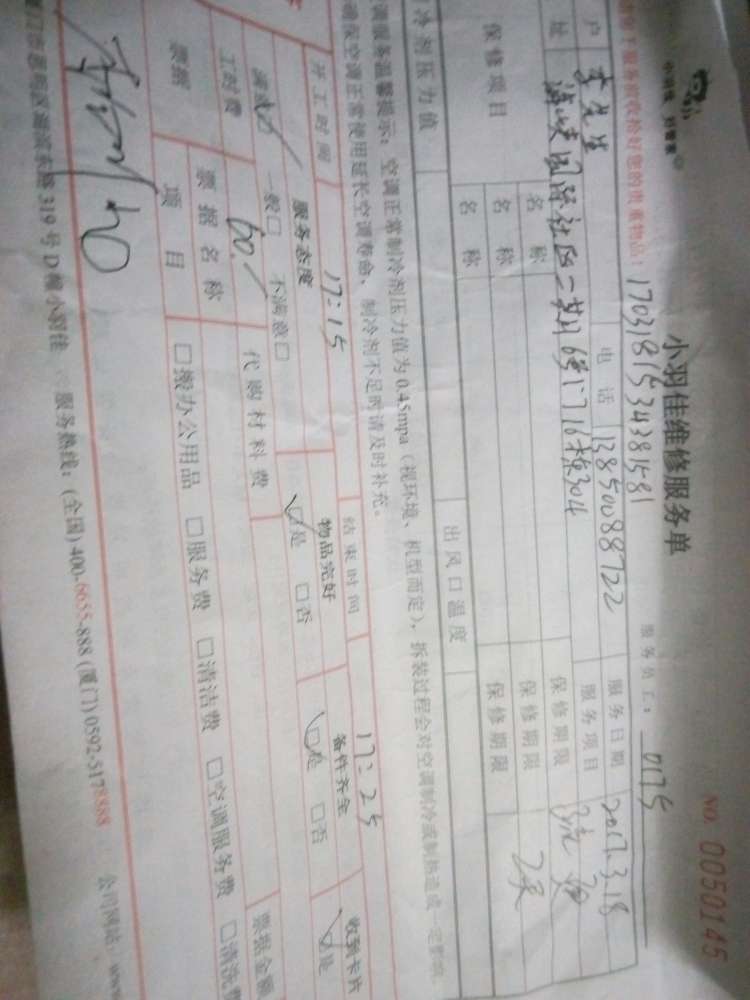 小羽佳 好管家
小羽佳维修服务单
NO. 0050145
服务前收拾好您的贵重物品！
1703181534381581
服务员工： 0175
户 李先生 电话 13850088722 服务日期 2017.3.18
址 海峡国际社区二期 服务项目
保修项目 名称 保修期限
名称 保修期限
名称 保修期限
冷剂压力值 出风口温度
调服务温馨提示：空调正常制冷剂压力值为0.45mpa（视环境、机型而定），拆装过程会对空调制冷或制热造成一定影响
确保空调正常使用延长空调寿命，制冷剂不足时请及时补充。
开工时间 17:15 结束时间 17:25
服务态度 物品完好 备件齐全 收到卡片
满意☑ 一般□ 不满意□ ☑是 □否 ☑是 □否 ☑是
工时费 60. 代购材料费
票据 票据名称 票据金额
项目 □搬办公用品 □服务费 □清洁费 □空调服务费 □清洗费
319号D幢小羽佳 服务热线：(全国)400-6655-888 (厦门)0592-5178888 公司网站：www